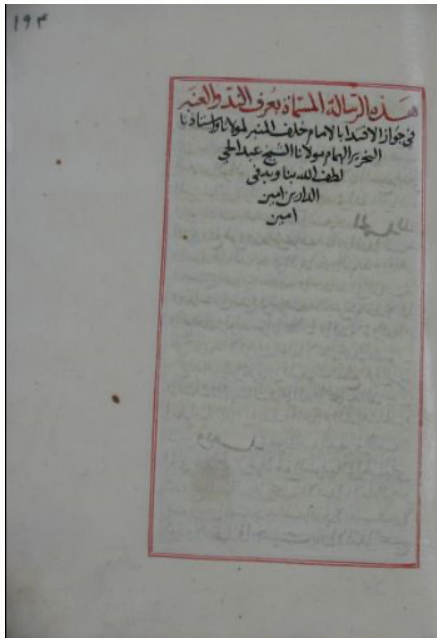 ١٩٣
هذه الرسالة المسماة بعرف الند والعنبر
في جواز الاقتدا بالامام خلف المنبر لمولانا واستاذنا
النحرير الهمام مولانا الشيخ عبد الحي
لطف الله بنا وبه في
الدارين امين
امين